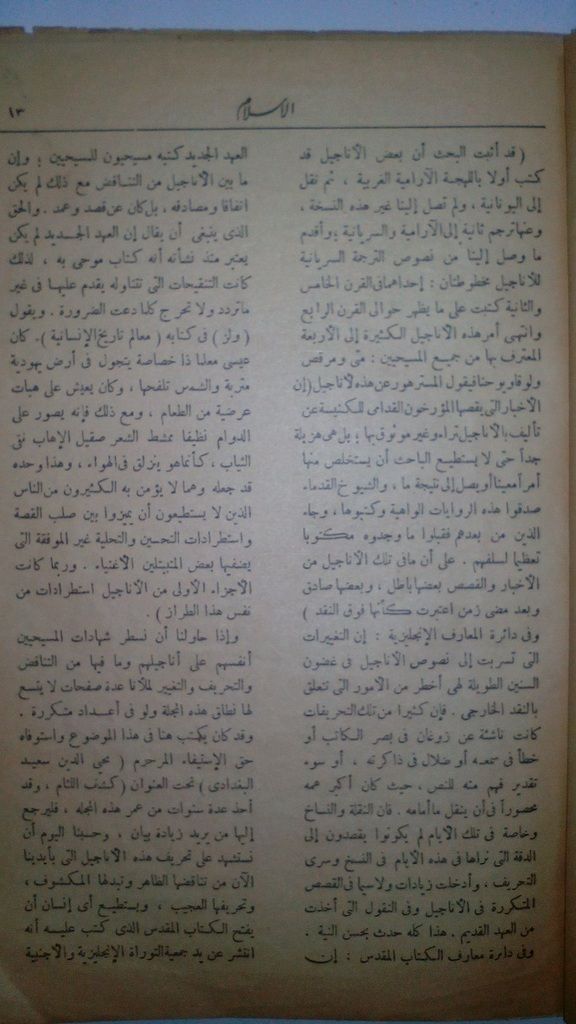 الاسلام
١٣
( قد أثبت البحث أن بعض الأناجيل قد
كتب أولا باللهجة الآرامية الغربية ، ثم نقل
إلى اليونانية ، ولم تصل إلينا غير هذه النسخة ،
وعنها ترجم ثانية إلى الآرامية والسريانية ؛ وأقدم
ما وصل إلينا من نصوص الترجمة السريانية
للأناجيل مخطوطتان : إحداهما فى القرن الخامس
والثانية كتبت على ما يظهر حوالى القرن الرابع
وانتهى أمر هذه الأناجيل الكثيرة إلى الأربعة
المعترف بها من جميع المسيحيين : متى ومرقص
ولوقا ويوحنا فيقول المستر هورعن هذه لأناجيل (إن
الأخبار التى يقصها المؤرخون القدامى للكنيسة عن
تأليف بالأناجيل تراء وغير موثوق بها ؛ بل هى هزيلة
جداً حتى لا يستطيع الباحث أن يستخلص منها
أمراً معيناً أو يصل إلى نتيجة ما ، والشيوخ القدماء
صدقوا هذه الروايات الواهية وكتبوها ، وجاء
الذين من بعدهم فقبلوا ما وجدوه مكتوبا
تعظيما لسلفهم . على أن مافى تلك الأناجيل من
الأخبار والقصص بعضها باطل ، وبعضها صادق
وبعد مضى زمن اعتبرت كأنها فوق النقد )
وفى دائرة المعارف الإنجليزية : إن التغييرات
التى تسربت إلى نصوص الأناجيل فى غضون
السنين الطويلة لهى أخطر من الأمور التى تتعلق
بالنقد الخارجى . فإن كثيرا من تلك التحريفات
كانت ناشئة عن زوغان فى بصر الكاتب أو
خطأ فى سمعه أو ضلال فى ذاكرته ، أو سوء
تقدير فهم منه للنص ، حيث كان أكبر همه
محصوراً فى أن ينقل ما أمامه . فان النقلة والنساخ
وخاصة فى تلك الأيام لم يكونوا يقصدون إلى
الدقة التى نراها فى هذه الأيام فى النسخ وسرى
التحريف ، وأدخلت زيادات ولاسيما فى القصص
المتكررة فى الأناجيل وفى النقول التى أخذت
من العهد القديم . هذا كله حدث بحسن النية .
وفى دائرة معارف الكتاب المقدس : إن
العهد الجديد كتبه مسيحيون للمسيحيين ؛ وإن
ما بين الأناجيل من التناقض مع ذلك لم يكن
اتفاقا ومصادفه ، بل كان عن قصد وعمد . والحق
الذى ينبغى أن يقال إن العهد الجديد لم يكن
يعتبر منذ نشأته أنه كتاب موحى به ، لذلك
كانت التنقيحات التى تتناوله يقدم عليها فى غير
ماتردد ولا تحرج كلما دعت الضرورة . ويقول
( ولز ) فى كتابه ( معالم تاريخ الإنسانية ) . كان
عيسى معلما ذا خصاصة يتجول فى أرض يهودية
متربة والشمس تلفحها ، وكان يعيش على هبات
عرضية من الطعام ، ومع ذلك فإنه يصور على
الدوام نظيفا ممشط الشعر صقيل الإهاب نقى
الثياب ، كأنما هو ينزلق فى الهواء ، وهذا وحده
قد جعله وهما لا يؤمن به الكثيرون من الناس
الذين لا يستطيعون أن يميزوا بين صلب القصة
واستطرادات التحسين والتحلية غير الموفقة التى
يضفيها بعض المتبتلين الأغنياء . وربما كانت
الأجزاء الأولى من الأناجيل استطرادات من
نفس هذا الطراز ) .
وإذا حاولنا أن نسطر شهادات المسيحيين
أنفسهم على أناجيلهم وما فيها من التناقض
والتحريف والتغيير لملأنا عدة صفحات لا يتسع
لها نطاق هذه المجلة ولو فى أعداد متكررة .
وقد كان يكتب هنا فى هذا الموضوع واستوفاه
حق الإستيفاء المرحوم ( محيى الدين سعيد
البغدادى ) تحت العنوان ( كشف اللثام ، وقد
أخذ عدة سنوات من عمر هذه المجله ، فليرجع
إليها من يريد زيادة بيان . وحسبنا اليوم أن
نستشهد على تحريف هذه الأناجيل التى بأيدينا
الآن من تناقضها الظاهر وتبدلها المكشوف ،
وتحريفها العجيب ، ويستطيع أى إنسان أن
يفتح الكتاب المقدس الذى كتب عليه أنه
انتشر عن يد جمعية التوراة الإنجليزية والأجنبية